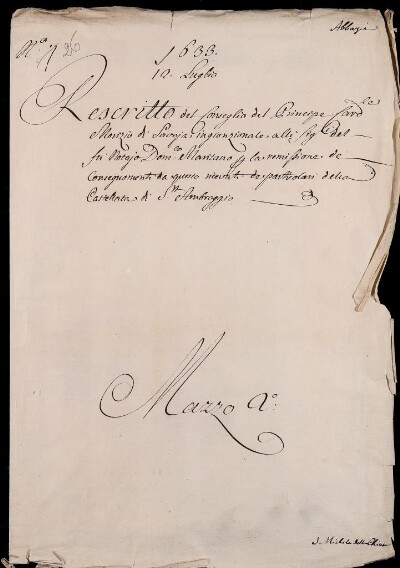 Abbazia
N.º 7 260
1633.
12. Luglio
Rescritto del Conseglio del Principe Card.le
Morizio di Savoja ingionzionale alli Sig.i
fu Notajo Dom.co Maritano la remissione de
Consegnamenti da questo ricevuti da particolari della
Castellata di S.t Ambroggio
Mazzo 2.º
S. Michele della Chiusa